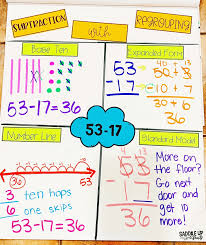 SUBTRACTION
with
REGROUPING
Base Ten
53-17=36
Expanded Form
40 + 13
53 50 + 3
-17 - 10 + 7
30 + 6
36
53-17
Number Line
36 53
3 ten hops
6 one skips
Standard Model
53
17
36
More on
the floor?
Go next
door and
get 10
more!
SADDLE UP